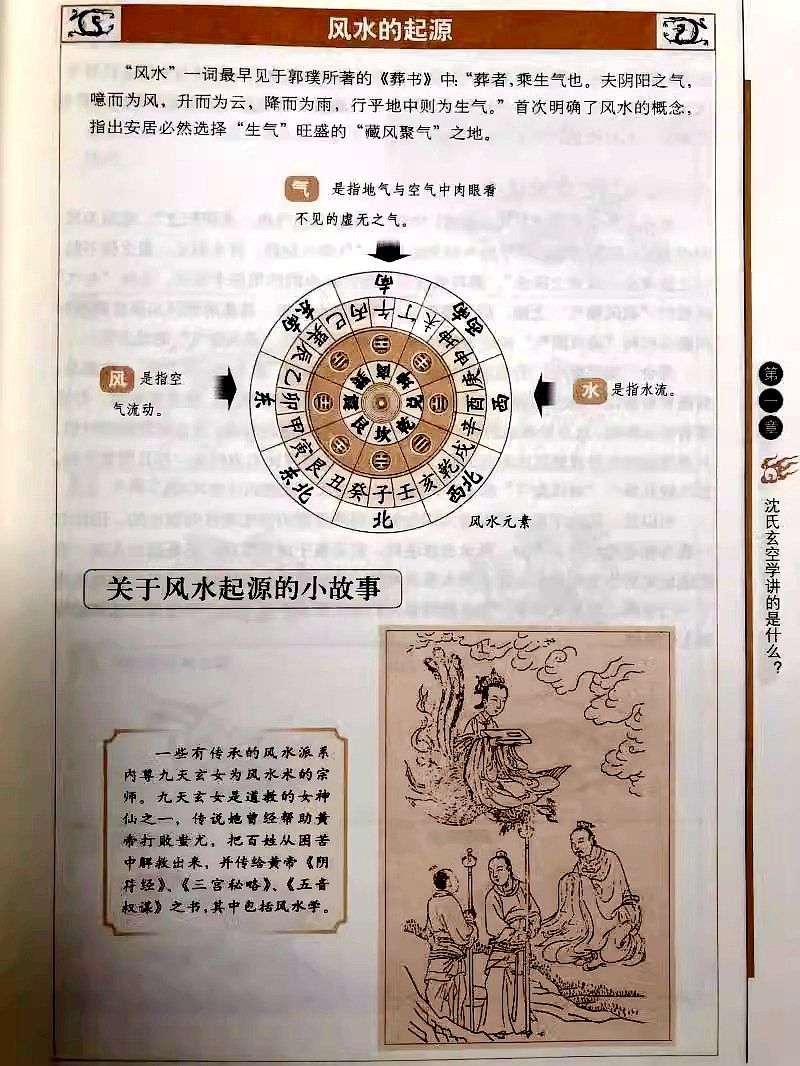 风水的起源
“风水”一词最早见于郭璞所著的《葬书》中：“葬者，乘生气也。夫阴阳之气，
噫而为风，升而为云，降而为雨，行乎地中则为生气。”首次明确了风水的概念，
指出安居必然选择“生气”旺盛的“藏风聚气”之地。
气 是指地气与空气中肉眼看
不见的虚无之气。
风 是指空
气流动。
水 是指水流。
南
西南
西
西北
北
东北
东
东南
午丁未坤申庚酉辛戌乾亥壬子癸丑艮寅甲卯乙辰巽巳丙
离坤兑乾坎艮震巽
风水元素
关于风水起源的小故事
一些有传承的风水派系
内尊九天玄女为风水术的宗
师。九天玄女是道教的女神
仙之一，传说她曾经帮助黄
帝打败蚩尤，把百姓从困苦
中解救出来，并传给黄帝《阴
符经》、《三宫秘略》、《五音
权谋》之书，其中包括风水学。
第一章
沈氏玄空学讲的是什么？